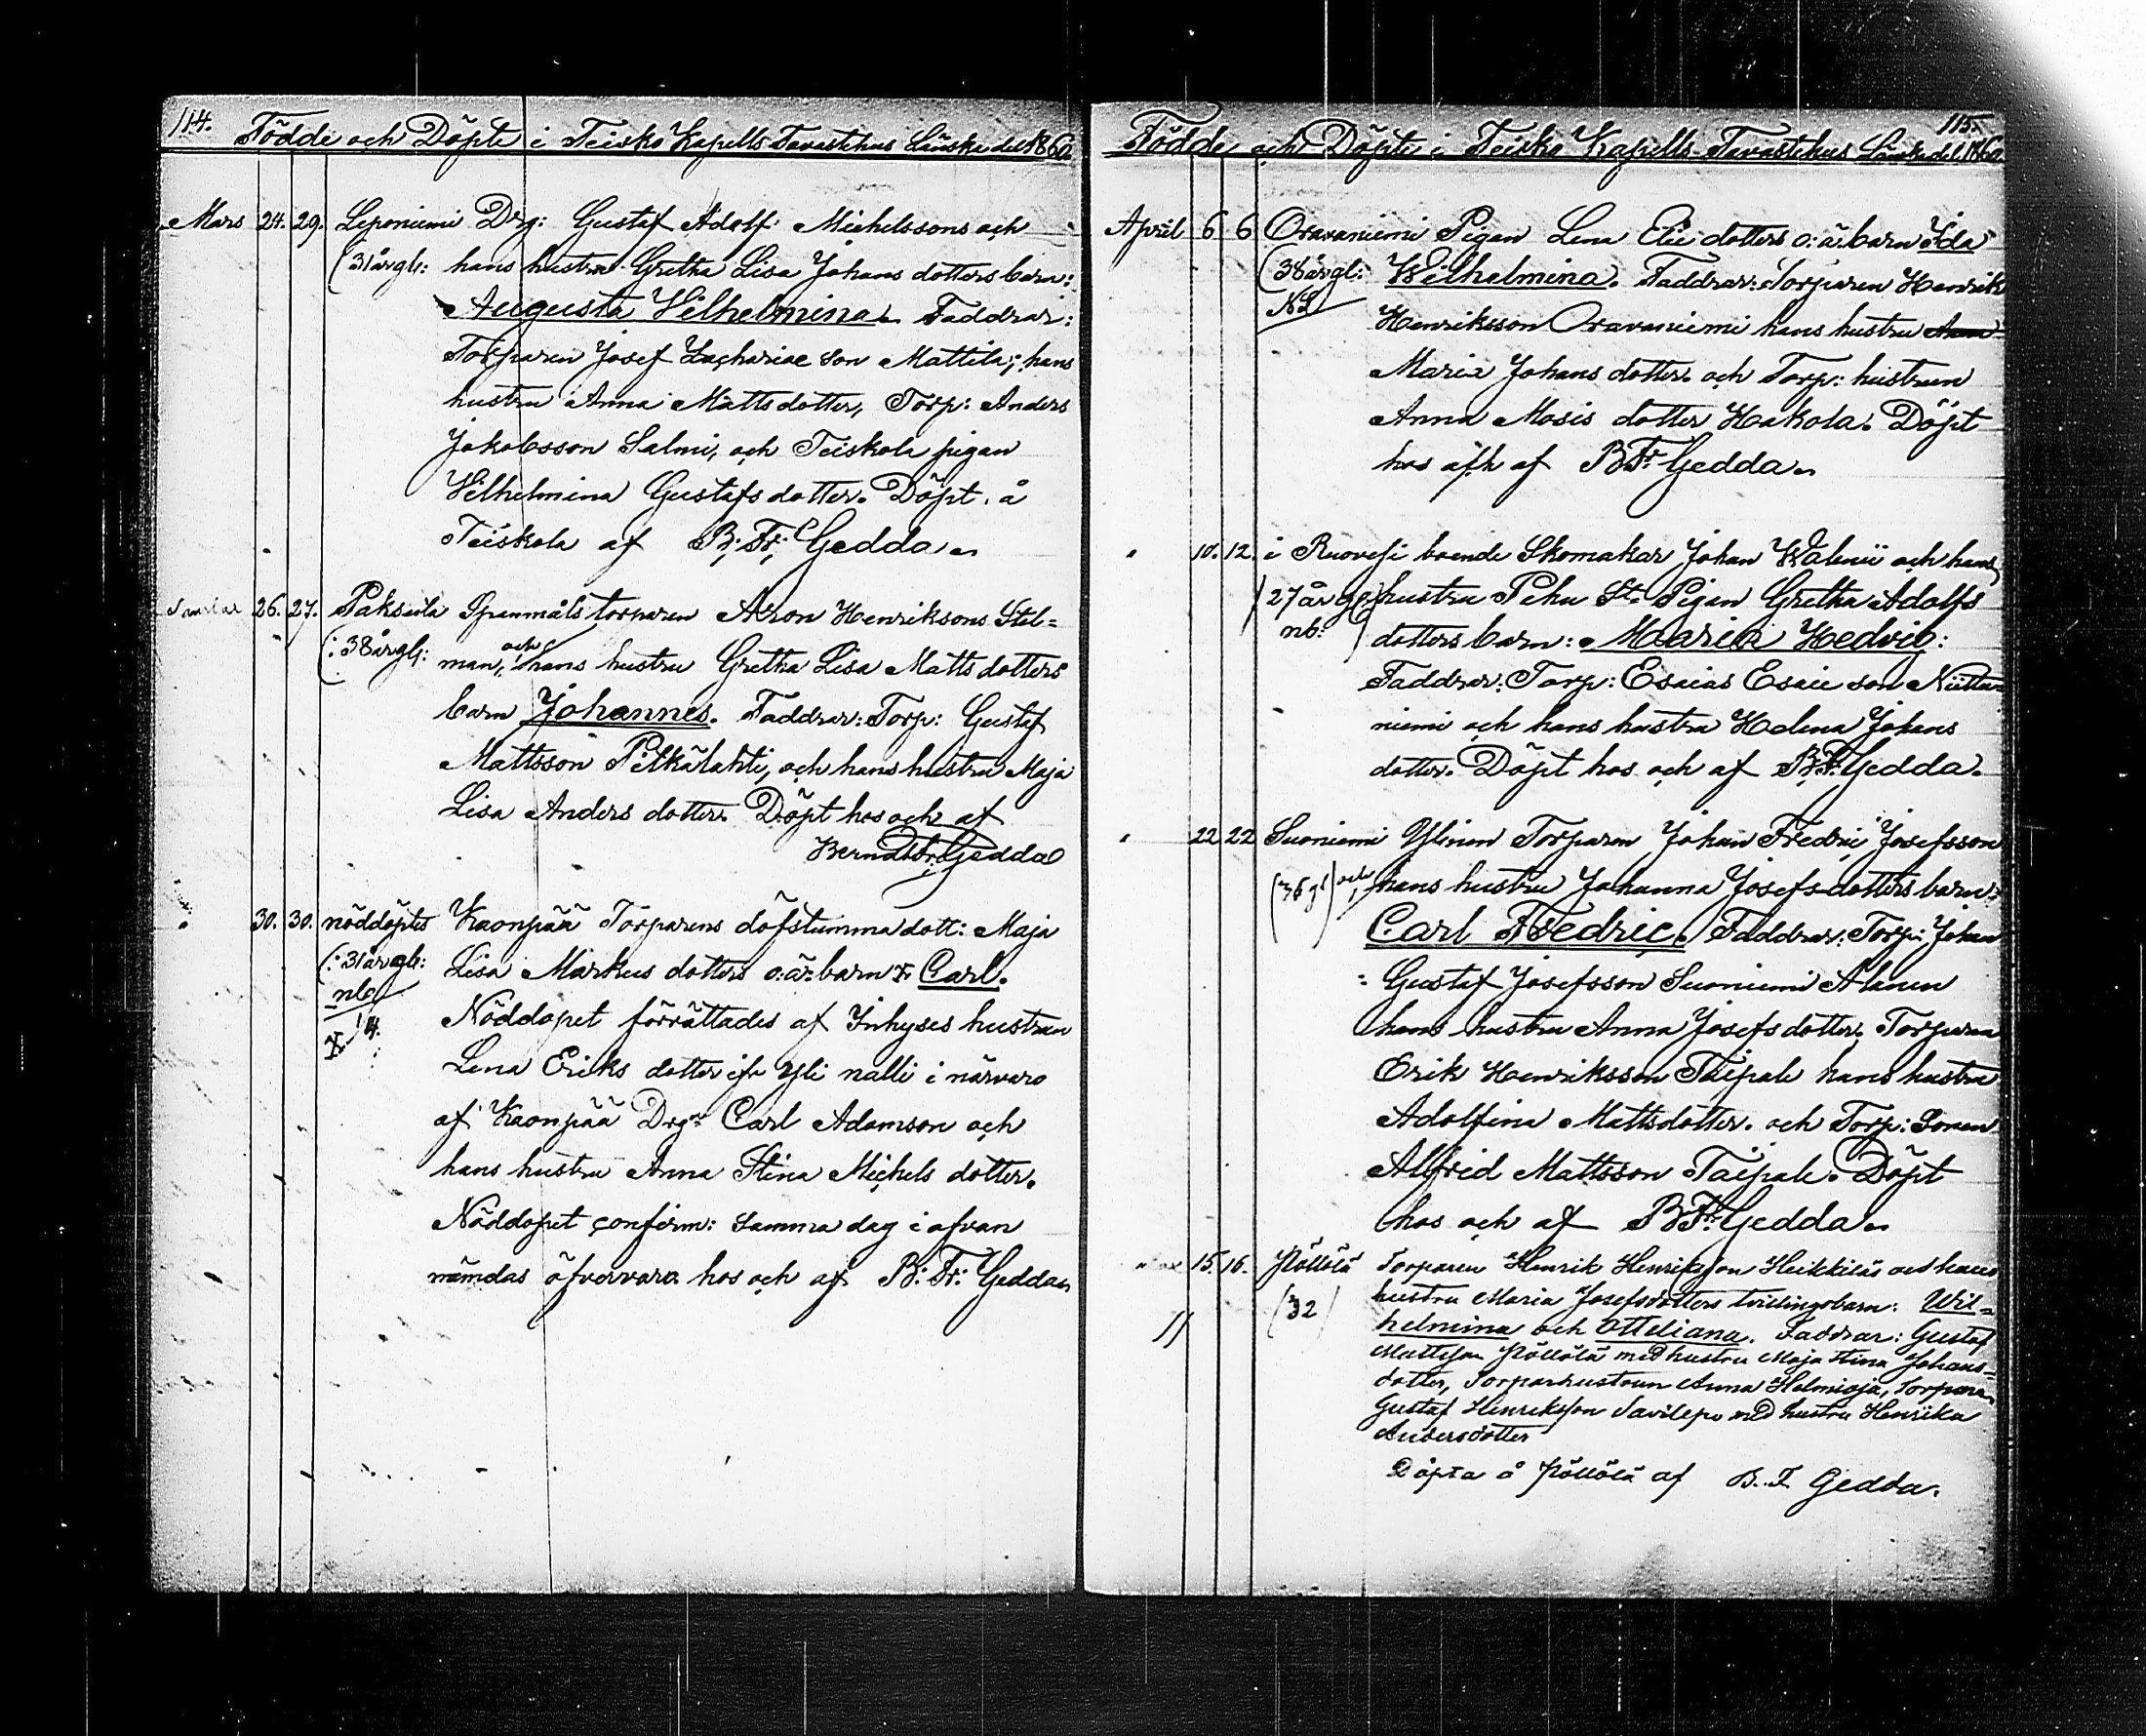 114.
Födde och Döpte i Teisko Kapells Tavastehus Länske del 1860
Mars 24. 29. Leponiemi Drg: Gustaf Adolf Michelssons och
(31 år gl: hans hustru Gretha Lisa Johans dotters barn:
Augusta Vilhelmina. Faddrar:
Torparen Josef Zachariae son Mattila; hans
hustru Anna Matts dotter, Torp: Anders
Jakobsson Salmi, och Teiskola pigan
Vilhelmina Gustafs dotter. Döpt å
Teiskola af B: Fr: Gedda.
26. 27. Paksula Spanmåls torparen Aron Henriksons Stel=
(:38 år gl: man, och hans hustru Gretha Lisa Matts dotters
barn Johannes. Faddrar: Torp: Gustaf
Mattsson Pitkälahti, och hans hustru Maja
Lisa Anders dotter. Döpt hos och af
Berndt Fr. Gedda
" 30. 30. nöddöptes Kaonpää Torparens döfstumma dott: Maja
(:31 år gl: Lisa Markus dotters o: ä: barn Carl.
nb
X 4.
Nöddopet förrättades af Inhyses hustrun
Lena Eriks dotter ifr Yli nalli i närvaro
af Kaonpää Drgn Carl Adamson och
hans hustru Anna Stina Michels dotter.
Nöddopet confirm: samma dag i ofvan
nämdas öfvervaro hos och af B: Fr: Gedda
115.
Födde och Döpte i Teisko Kapells Tavastehus Länske del 1860
April 6 6 Oravaniemi Pigan Lena Elie dotters o: ä: barn Ida
(38 år gl: Wilhelmina. Faddrar: Torparen Henrik
NB
Henriksson Oravaniemi hans hustru
Maria Johans dotter. och Torp: hustrun
Anna Mosis dotter Hakola. Döpt
hos o/h af B Fr: Gedda.
" 10. 12. i Ruovesi boende Skomakar Johan Walenii och hans
(27 år gl hustru Pehu St. Pigan Gretha Adolfs
nb: dotters barn: Maria Hedvig:
Faddrar: Torp: Esaias Esaie son Niitta=
niemi och hans hustru Helena Johans
dotter. Döpt hos och af B. Fr. Gedda.
" 22 22 Suoniemi Ylinen Torparen Johan Fredric Josefsson
(36 gl) och hans hustru Johanna Josefs dotters barn:
Carl Fredric. Faddrar: Torp: Johan
Gustaf Josefsson Suoniemi Alanen
hans hustru Anna Josefs dotter. Torparen
Erik Henriksson Taipale hans hustru
Adolfina Mattsdotter. och Torp: Sonen
Alfrid Mattsson Taipale. Döpt
hos och af B Fr: Gedda.
15. 16. Pöllölä Torparen Henrik Henriksson Heikkiläs och hans
(32) hustru Maria Josefsdotters tvillingobarn: Wil=
helmina och Otteliana. Faddrar: Gustaf
Mattsson Pöllölä med hustru Maja Stina Johans=
dotter, Torparhustrun Anna Helmioja, Torparen
Gustaf Henriksson Savilepo med hustru Henrika
Andersdotter
Döpta å Pöllölä af B. F. Gedda.